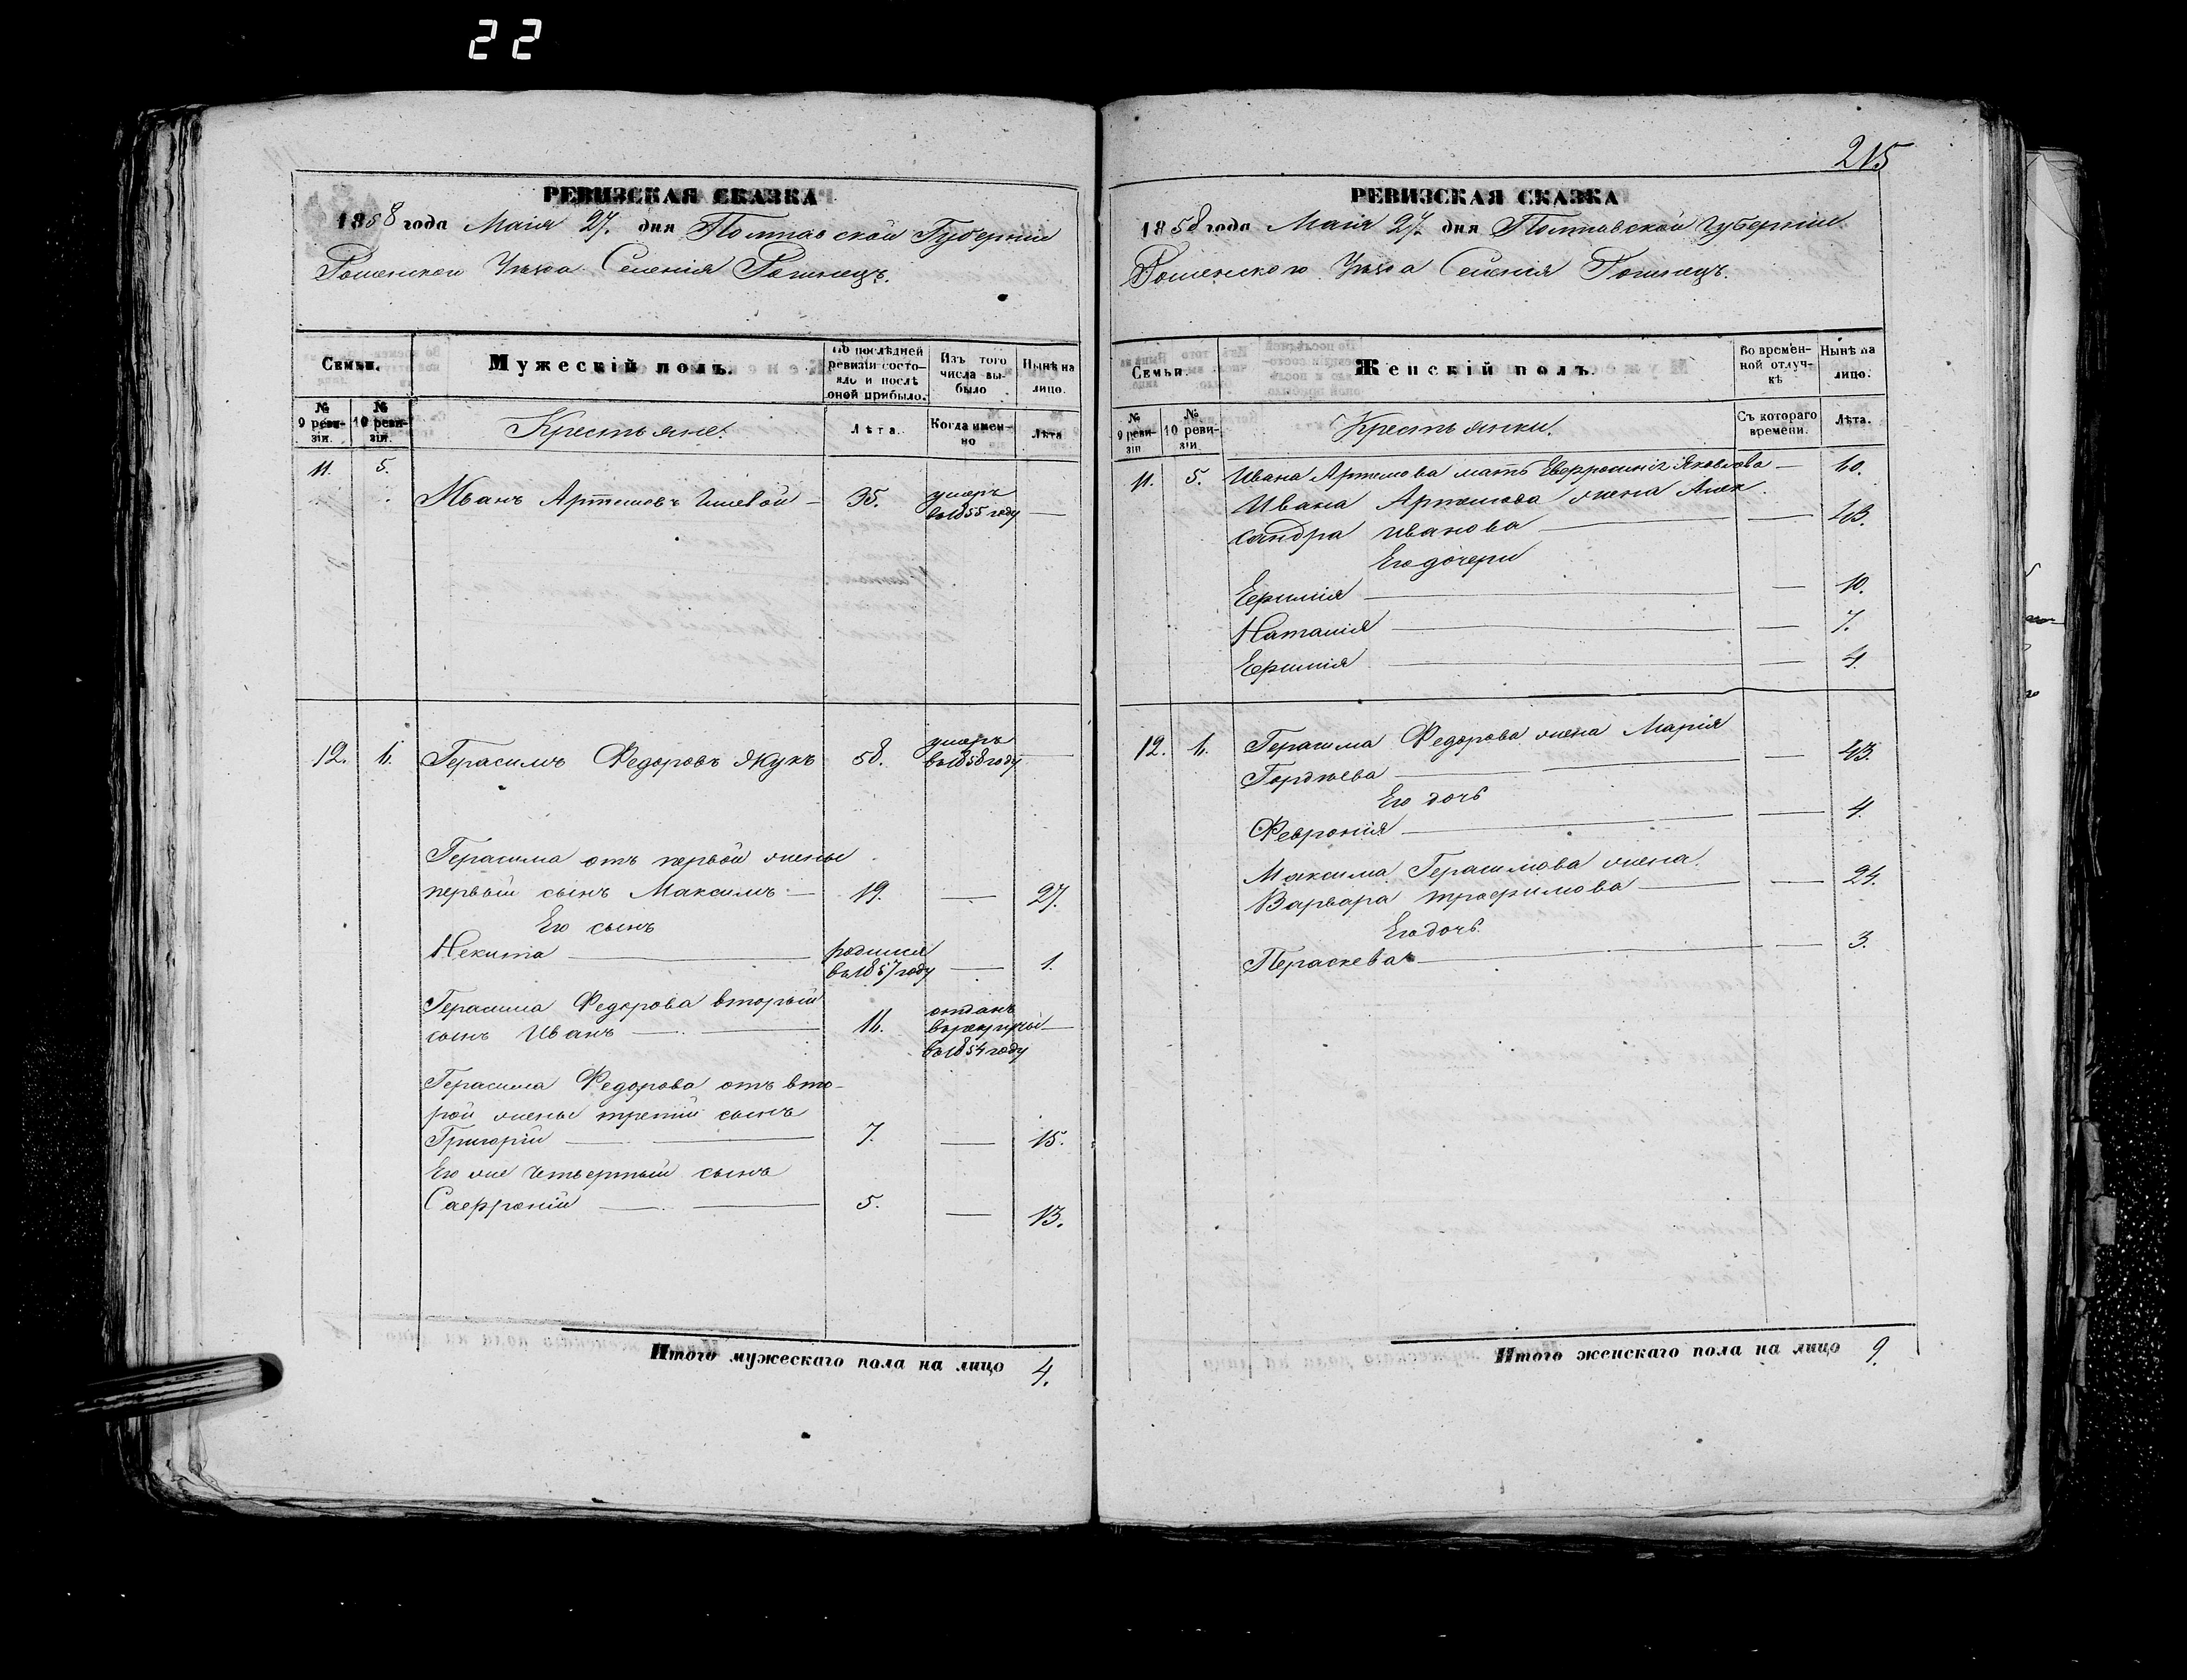 22
РЕВИЗСКАЯ СКАЗКА
1858 года Маія 27. дня Полтавской Губерніи
Роменского Уезда Селенія
Семьи.
Мужескій полъ.
По послѣдней ревизіи состояло и послѣ оной прибыло.
Изъ того числа выбыло
Нынѣ на лицо.
№ 9 ревизіи.
№ 10 ревизіи.
Крестьяне.
Лѣта.
Когда именно
Лѣта
11. 5.
Иванъ Артемовъ 35. умеръ
въ 1855 году —
12. 6. Герасимъ Федоровъ Жукъ 58. умеръ
въ 1858 году —
Герасима отъ первой жены
первый сынъ Максимъ — 19. — 27.
Его сынъ
Некита — родился
въ 1857 году — 1.
Герасима Федорова вторый
сынъ Иванъ — 16. отданъ
въ рекруты —
въ 1854 году
Герасима Федорова отъ вто-
рой жены третій сынъ
Григорій — 7. — 15.
Его же четвертый сынъ
Сафроній — 5. — 13.
Итого мужескаго пола на лицо 4.
215
РЕВИЗСКАЯ СКАЗКА
1858 года Маія 27. дня Полтавской Губерніи
Роменского Уезда Селенія
Семьи.
Женскій полъ.
Во временной отлучкѣ
Нынѣ на лицо.
№ 9 ревизіи
№ 10 ревизіи
Крестьянки.
Съ котораго времени.
Лѣта.
11. 5. Ивана Артемова мать Евфросинія Яковлева — 60.
Ивана Артемова жена Алек
сандра Иванова — 43.
Его дочери
Ефимія — 10.
Наталія — 7.
Ефимія — 4.
12. 6. Герасима Федорова жена Марія
Гордѣева — 43.
Его дочь
Феврония — 4.
Максима Герасимова жена
Варвара Трофимова — 24.
Его дочь
Пераскева — 3.
Итого женскаго пола на лицо 9.